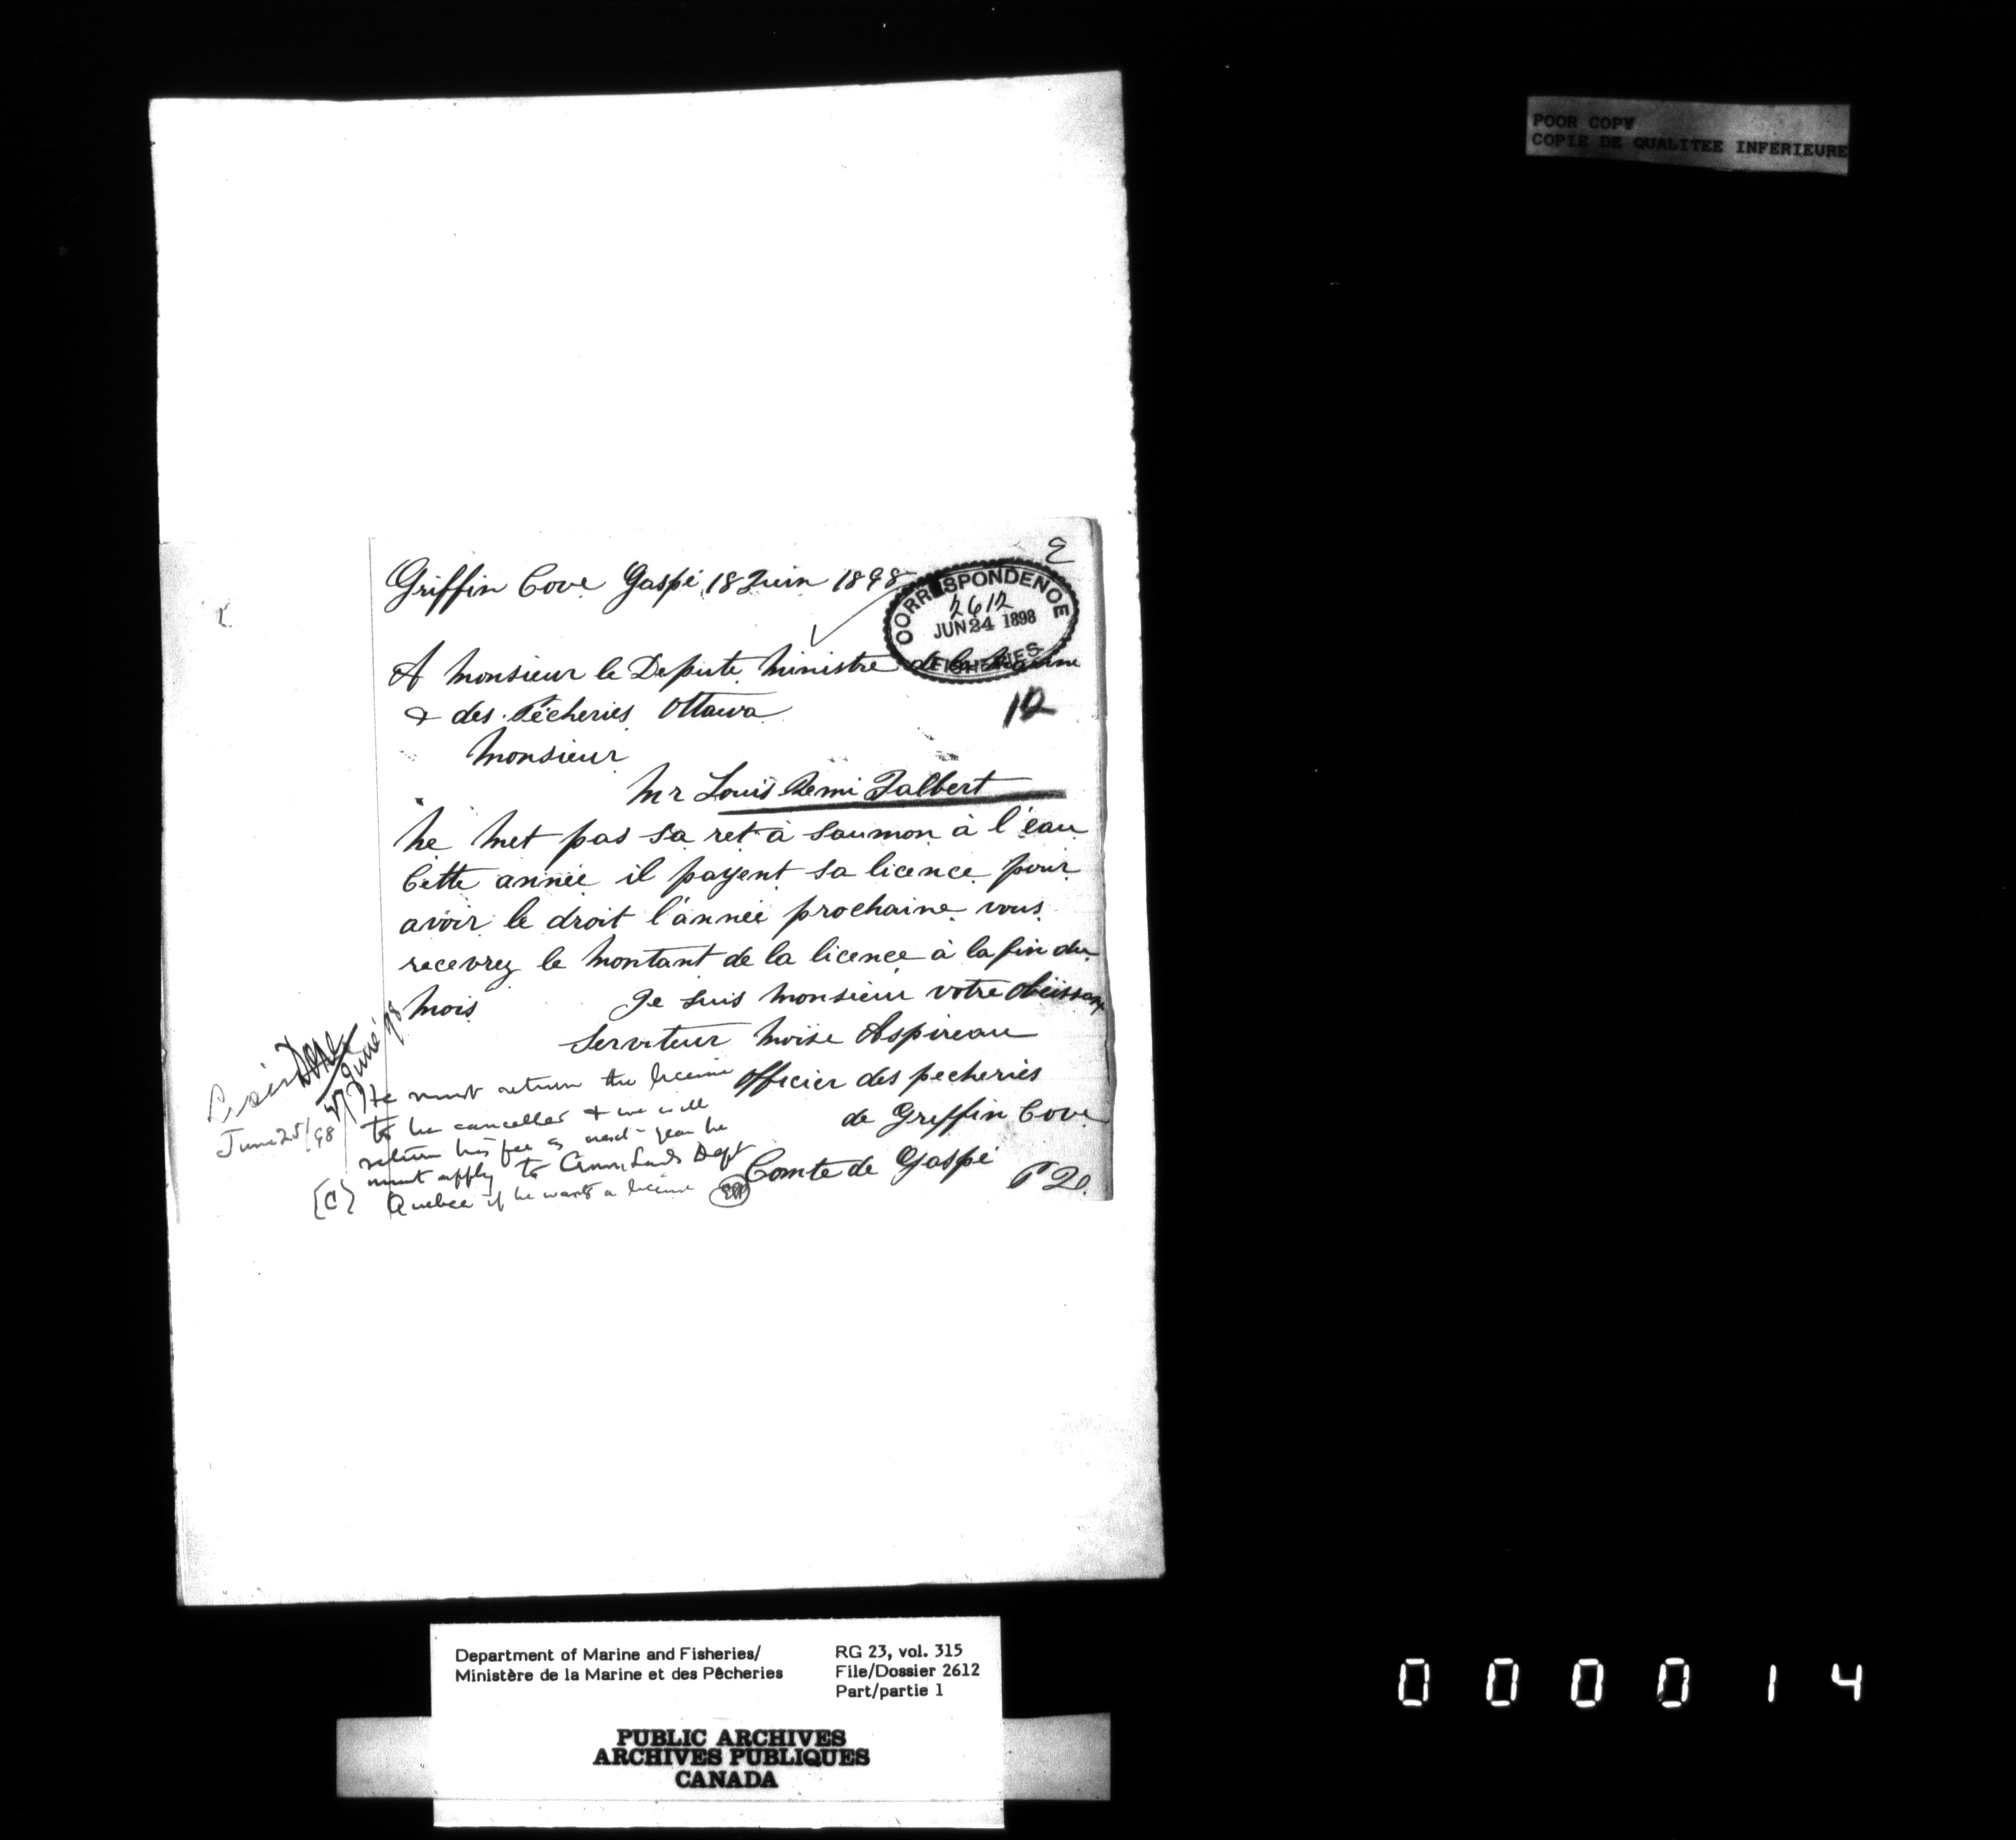 POOR COPY
COPIE DE QUALITEE INFERIEURE
Griffin Cove Gaspé 18 Juin 1898
CORRESPONDENCE
2612
JUN 24 1898
FISHERIES
A Monsieur le Depute Ministre de la Marine
& des Pêcheries Ottawa
12
Monsieur
Mr Louis Remi Jalbert
ne met pas sa ret à saumon à l'eau
Cette année il payent sa licence pour
avoir le droit l'année prochaine vous
recevrez le montant de la licence à la fin du
mois Je suis monsieur votre obéissant
Serviteur Moise Aspireau
Officier des pecheries
de Griffin Cove
Comte de Gaspé P Q.
June 25/98
He must return the license
to be cancelled & we will
return his fee as next year he
must apply to Crown Lands Dept
Quebec if he wants a license
Department of Marine and Fisheries/
Ministère de la Marine et des Pêcheries
RG 23, vol. 315
File/Dossier 2612
Part/partie 1
PUBLIC ARCHIVES
ARCHIVES PUBLIQUES
CANADA
0 0 0 0 1 4